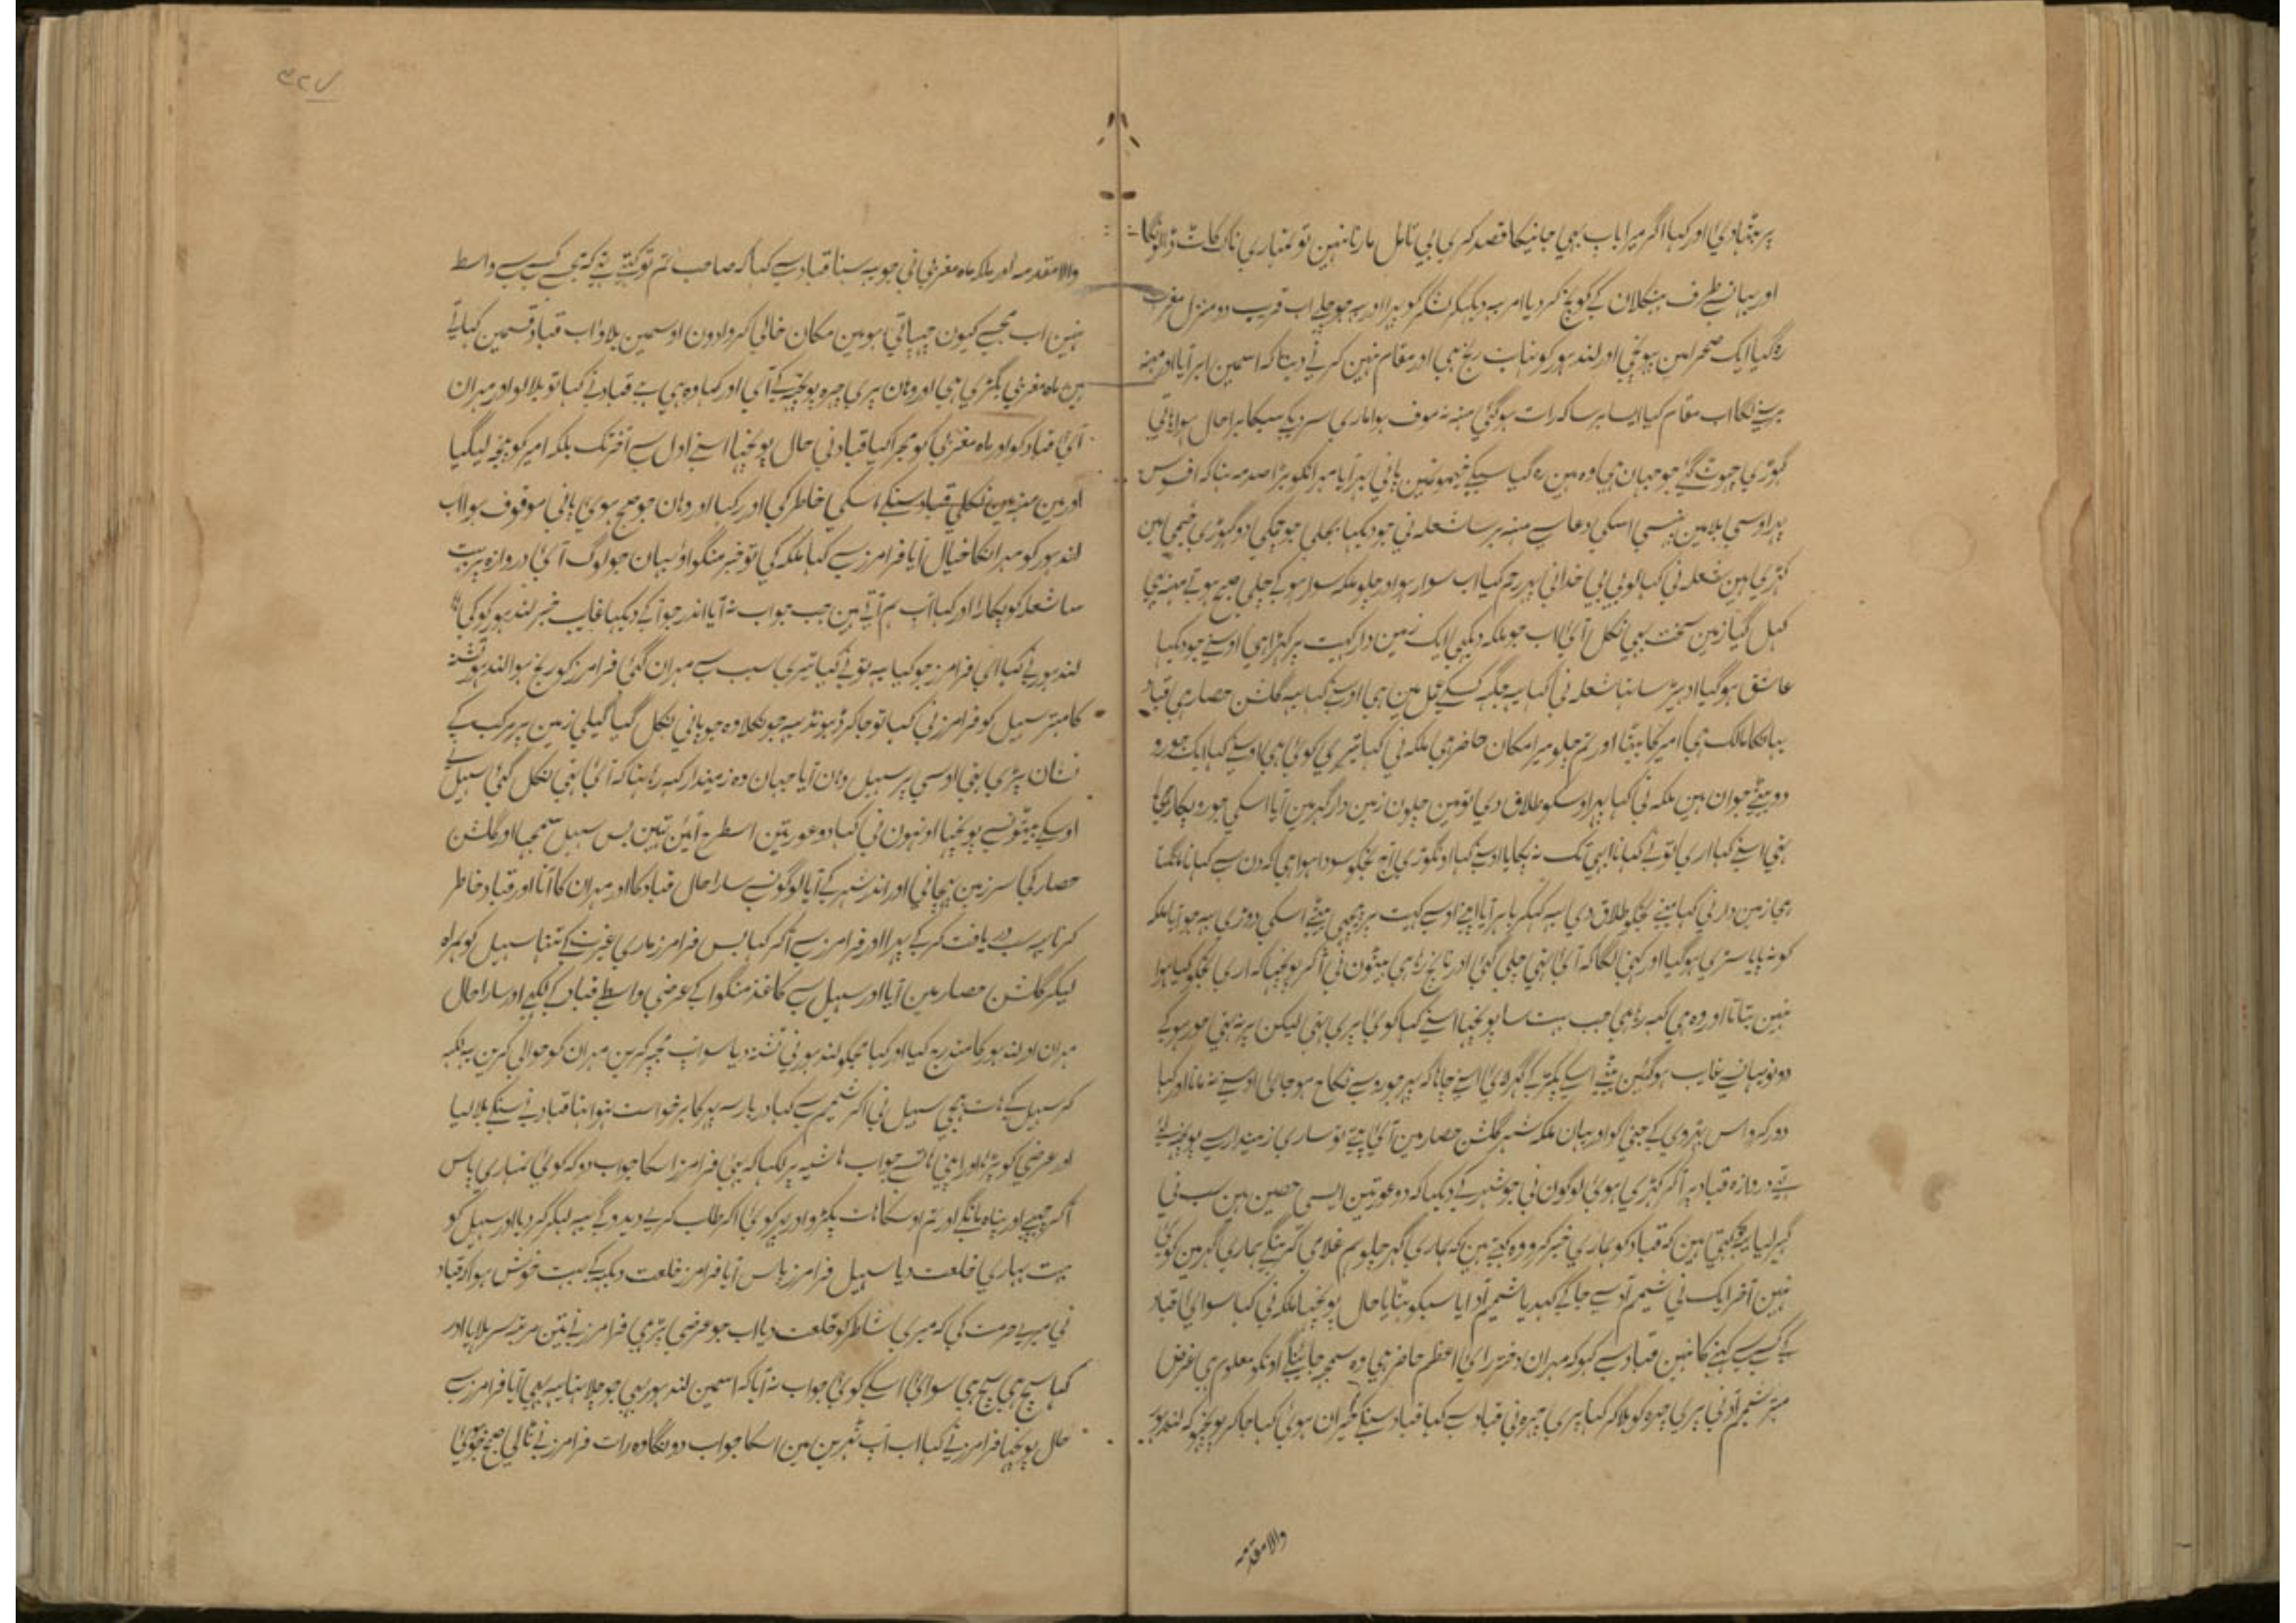 پر بٹہادیٔ اور کہا اگر میرا باپ بہی جانیکا قصد کری بی تامل مارنا نہین تو تمہاری ناک کاٹ ڈالونگا
اور یہانسے طرف بنکلان کے کوچ کر دیا امر یہ دیکہکر لشکر کو پہرا اور یہ جو چلے اب قریب دو منزل مغرب
رہ گیا ایک صحرا مین پہونچی اور لندہور کو نہایت رنج ہی اور مقام نہین کرنے دیتا کہ اسمین ابر آیا اور مینہ
برسنے لگا اب مقام کیا ایسا برسا کہ رات ہوگئی مینہ نہ موقوف ہوا ماری سردی کے سبکا برا حال ہوا ہاتی
گہوڑی چہوٹ گئے جو جہان ہی وہ ہین رہ گیا سبکے خیمونمین پانی بہر آیا مہرانکو بڑا صدمہ تہا کہ افسوس
پہر اوسی بلا مین پہنسی اسکی دعا سے مینہ برسا شعلہ نی جو دیکہا بجلی جو چمکی دو گہوڑی خیمی مین
کہڑی ہین شعلہ نی کہا لو بی بی خدا نی پہر رحم کیا اب سوار ہو اور چلو ملکہ سوار ہو کے چلی صبح ہوتے مینہ بہی
کہل گیا زمین سخت بہی نکل آئی اب جو ملکہ دیکہی ایک زمین دار کہیت پر کہڑا ہی اوسنے جو دیکہا
عاشق ہو گیا شعلہ نی کہا یہ جگہ کسکے عمل مین ہی اوسنے کہا یہ گلشن حصار ہی قباد
یہانکا مالک ہی امیر کا بیٹا اور تم چلو میرا مکان حاضر ہی ملکہ نی کہا تیری کوئی ہی اوسنے کہا ایک جورو
دو بیٹے جوان ہین ملکہ نی کہا پہر اوسکو طلاق دی تو مین چلون زمین دار گہر مین آیا اسکی جورو پکا رہی
تہی اسنے کہا اری تونے کہانا ابہی تک نہ پکایا اوسنے کہا تجکو سودا ہوا ہی کہ دن سے کہانا مانگتا
ہی زمین دار نی کہا مینے تجکو طلاق دی یہ کہکر باہر آیا اپنے اوسے کہیت پر پیچہی بیٹے اسکی دوڑی یہ جو آیا ملکہ
کو نہ پایا سڑی ہو گیا اور کہنی لگا کہ آئی تہی چلی گئی اور ناچ رہا ہی بیٹون نی آکر پوچہا کہ اری تجکو کیا ہوا
نہین بتاتا اور وہ ہی کہہ رہا ہی جب بہت سا پوچہا اسنے کہا کوئی پری تہی لیکن پر نہ تہی حور ہو کے
دونو یہانسے غایب ہوگئین بیٹے اسکے پکڑ کے گہر لائی اسنے چاہا کہ پہر جورو سے نکاح ہو جائی اوسنے نہ مانا اور کہا
دور کرو اس اور یہان ملکہ شہر گلشن حصار مین آئی
دروازہ قباد پر آکر کہڑی ہوئی لوگون نی جو شہر کے دیکہا کہ دو عورتین ایسی حسین ہین سب نی
گہیر لیا یہ کہتی ہین کہ قباد کو ہماری خبر کرو وہ کہتے ہین کہ ہماری گہر چلو ہم غلامی کرینگے ہماری گہر مین کوئی
نہین آخر ایک نی شمیم آد سے جا کے کہدیا شمیم آد آیا سبکو ہٹایا حال پوچہا ملکہ نی کہا سوائی قباد
کے کسی سے کہنے کا نہین قباد سے کہو کہ مہران دختر رائی اعظم حاضر ہی وہ سمجہ جائینگے اونکو معلوم ہی غرض
مہتر شمیم آد نی پری چہرہ کو بلا کر کہا پری چہرہ نی قباد سے کہا قباد سنکے حیران ہوئی کہا جا کر پوچہو کہ لندہور
والا مقدمہ
والا مقدمہ اور ملکہ ماہ مغربی نی جو یہ سنا قباد سے کہا کہ صاحب تم تو کہتے تہے کہ مجے کسی سے واسطہ
نہین اب مجسے کیون چہپاتی ہو مین مکان خالی کروا دون اوسمین بلاؤ اب قباد قسمین کہاتے
ہین ماہ مغربی بگڑی ہی اور وہان پری چہرہ پوچہہ کے آئی اور کہا وہ ہی ہے قباد نے کہا تو بلا لو اور مہران
آئی قباد کو اور ماہ مغربی کو مجرا کیا قباد نی حال پوچہا اسنے اول سے آخر تک بلکہ امیر کو پنجہ لیگیا
اور مین مینہ مین نکلی قباد سنکے اسکی خاطر کی اور رکہا اور وہان جو صبح ہوئی پانی موقوف ہوا اب
لندہور کو مہرانکا خیال آیا فرامرز سے کہا ملکہ کی تو خبر منگواؤ یہان جو لوگ آئی دروازہ پر بہت
سا شعلہ کو پکارا اور کہا اب ہم آتے ہین جب جواب نہ آیا اندر جو آکے دیکہا غایب خبر لندہور کو کی
لندہور نے کہا ای فرامرز جو کیا یہ تونے کیا تیری سبب سے مہران گئی فرامرز کو رنج ہوا لندہور
کا مہتر سہیل کو فرامرز نی کہا تو جا کر ڈہونڈ یہ جو نکلا وہ جو پانی نکل گیا گیلی زمین پر مرکب کے
نشان پڑی تہی اوسی پر سہیل وہان آیا جہان وہ زمیندار کہہ رہا تہا کہ آئی تہی نکل گئی سہیل نے
اوسکے بیٹونسے پوچہا اونہون نی کہا دو عورتین اسطرح آئین تہین بس سہیل سمجہا اور گلشن
حصار کی سرزمین پہچانی اور اندر شہر کے آیا لوگونسے سارا حال قباد کا اور مہران کا آنا اور قباد خاطر
کرنا یہ سب دریافت کر کے پہرا اور فرامرز سے آکر کہا بس فرامرز ماری غیرت کے تنہا سہیل کو ہمراہ
لیکر گلشن حصار مین آیا اور سہیل سے کاغذ منگوا کے عرضی واسطے قباد کے لکہی اور سارا حال
مہران اور لندہور کا مندرج کیا اور کہا مجکو لندہور نی تشنہ دیا سو آپ مجہپر کرین مہران کو حوالی کرین یہ لکہہ
کر سہیل کے ہات بہیجی سہیل نی آکر شمیم سے کہا دربار سہ پہر کا برخواست ہوا تہا قباد نے سنکے بلا لیا
اور عرضی کو پڑہا اور اپنی ہاتہسے جواب حاشیہ پر لکہا کہ بہئی فرامرز اسکا جواب دو کہ کوئی تمہاری پاس
آکر چہپے اور پناہ مانگے اور تم اوسکا ہات پکڑو اور پہر کوئی آکر طلب کری دیدوگے یہ لکہکر کر دیا اور سہیل کو
بہت بہاری خلعت دیا سہیل فرامرز پاس آیا فرامرز خلعت دیکہہ کے بہت خوش ہوا کہ قباد
نی میری حرمت کی کہ میری شاطر کو خلعت دیا اب جو عرضی پڑہی فرامرز نے تین مرتبہ سر ہلایا اور
کہا سچ ہی سچ ہی سوائی اسکے کوئی جواب نہ آیا کہ اسمین لندہور بہی جو چلا تہا یہ بہی آیا فرامرز سے
حال پوچہا فرامرز نے کہا اب آپ شہرین مین اسکا جواب دونگا وہ رات فرامرز نے ٹالی صبح جو ہوئی